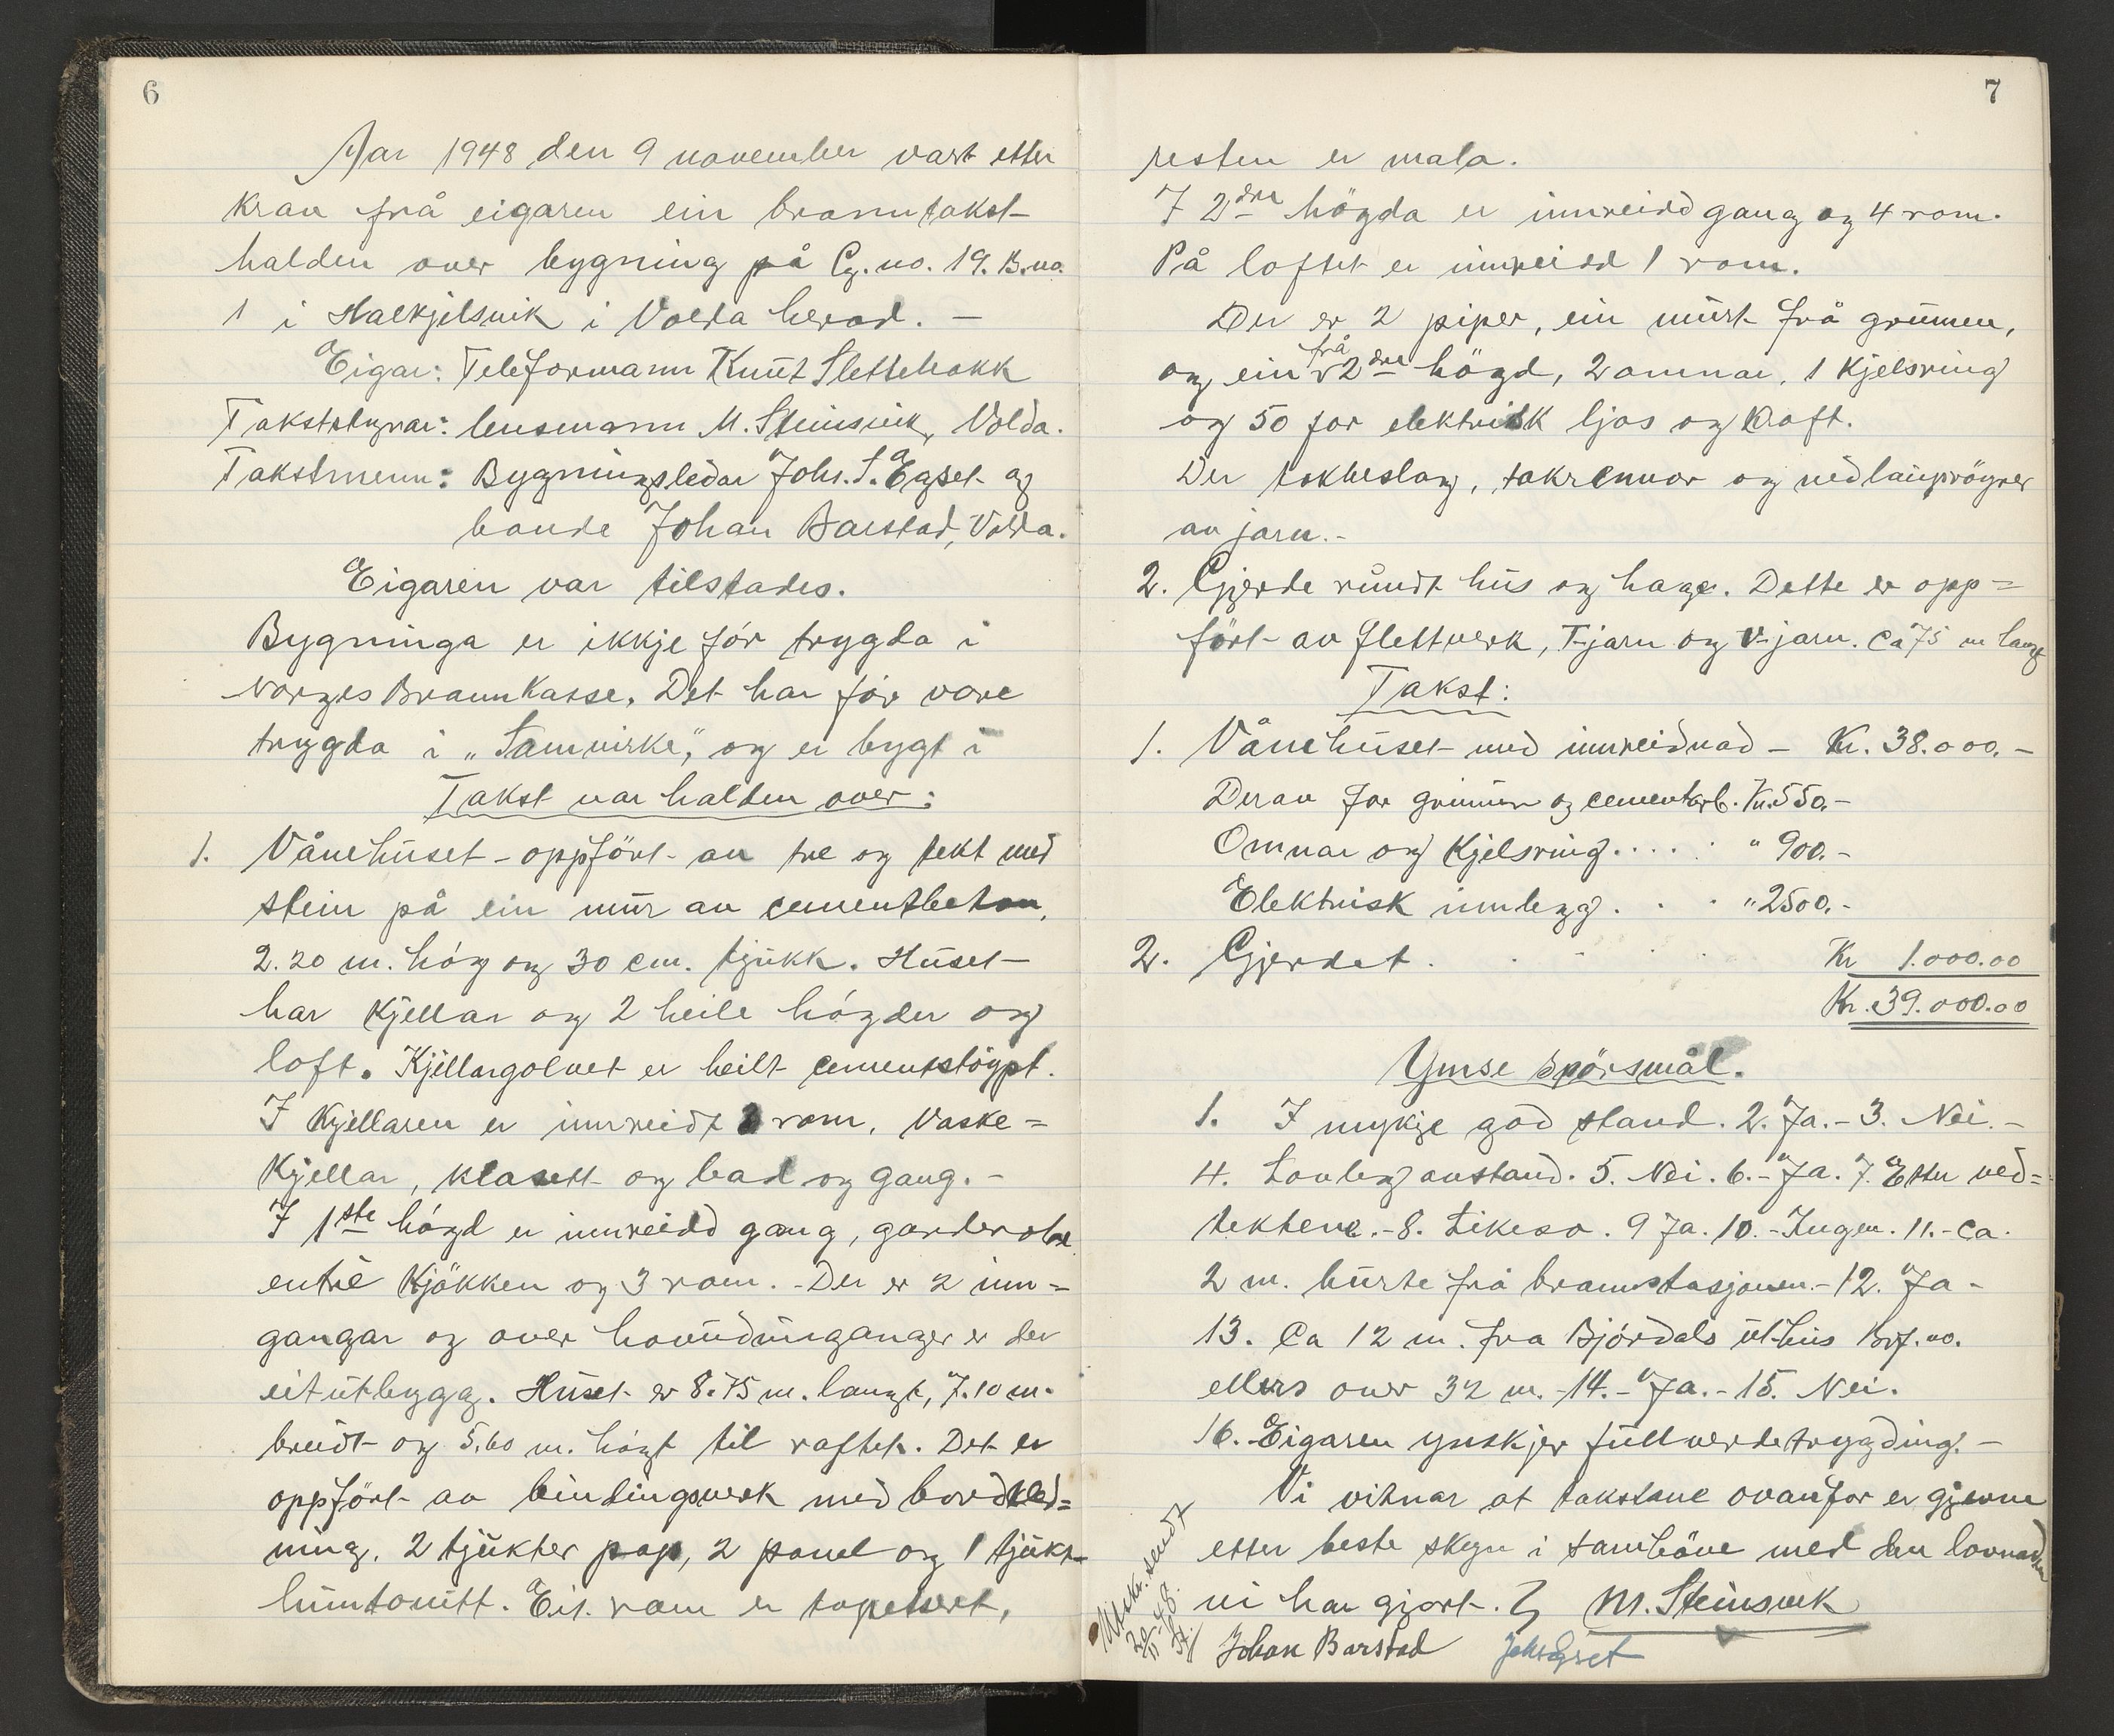 6
Aar 1948 den 9 november vart etter
krav frå eigaren ein branntakst
halden over bygning på G. no. 19. B. no.
1 i Halkjelsvik i Volda herad. —
Eigar: Teleformann Knut Slettebakk
Takststyrar: lensmann M. Steinsvik, Volda.
Takstmenn: Bygningsleidar Johs. S. Egset og
bonde Johan Barstad, Volda.
Eigaren var tilstades.
Bygninga er ikkje før trygda i
Norges Brannkasse. Det har før vore
trygda i „Samvirke", og er bygt i
Takst var halden over:
1. Vånehuset - oppført av tre og tekt med
stein på ein mur av cementbeton,
2.20 m. høg og 30 cm. tjukk. Huset
har kjellar og 2 heile høgder og
loft. Kjellargolvet er heilt cementstøypt.
I kjellaren er innreidt 3 rom, vaske=
kjellar, klosett og bad og gang. -
I 1ste høgd er innreidd gang, garderobe
entré kjøkken og 3 rom. - Der er 2 inn=
gangar og over hovudinganger er der
eit utbygg. Huset er 8.75 m. langt, 7.10 m.
breidt og 5,60 m. høgt til raftet. Det er
oppført av bindingsverk med bordkled=
ning. 2 tjukter pap, 2 panel og 1 tjukt
huntonitt. Eit rom er tapetsert,
7
resten er mala.
I 2dre høgda er innreidd gang og 4 rom.
På loftet er innreidd 1 rom.
Der er 2 piper, ein murt frå grunnen,
og ein frå 2dre høgd, 2 omnar, 1 kjelsring
og 50 for elektrisk ljos og kraft.
Der takbeslag, takrennor og nedlaupsrøyrer
av jarn. -
2. Gjerde rundt hus og hage. Dette er opp=
ført av flettverk, T-jarn og V-jarn. Ca 75 m lang
Takst:
1. Vånehuset med innreidnad - Kr. 38.000. -
Derav for grunnen og cementarb. Kr. 550. -
Omnar og kjelsring . . . . . " 900. -
Elektrisk innlegg . . . " 2500. -
2. Gjerdet . . . . . Kr 1.000.00
Kr. 39.000.00
Ymse spörsmål.
1. I mykje god stand. 2. Ja. - 3. Nei. -
4. Lovleg avstand. 5. Nei. 6. - Ja. 7. Etter ved=
tektene. - 8. Likeso. 9 Ja. 10. - Ingen. 11. - Ca.
2 m. burte frå brannstasjonen. - 12. Ja -
13. Ca 12 m. fra Bjørdals uthus Brf. no.
ellers over 32 m. - 14. - Ja. - 15. Nei.
16. Eigaren ynskjer fullverdetrygding. -
Vi vitnar at takstane ovanfor er gjevne
etter beste skyn i samhöve med den lovnaden
vi har gjort. M. Steinsvik
Johan Barstad Johs Egset
Utskr. sendt
20/11-48.
St.